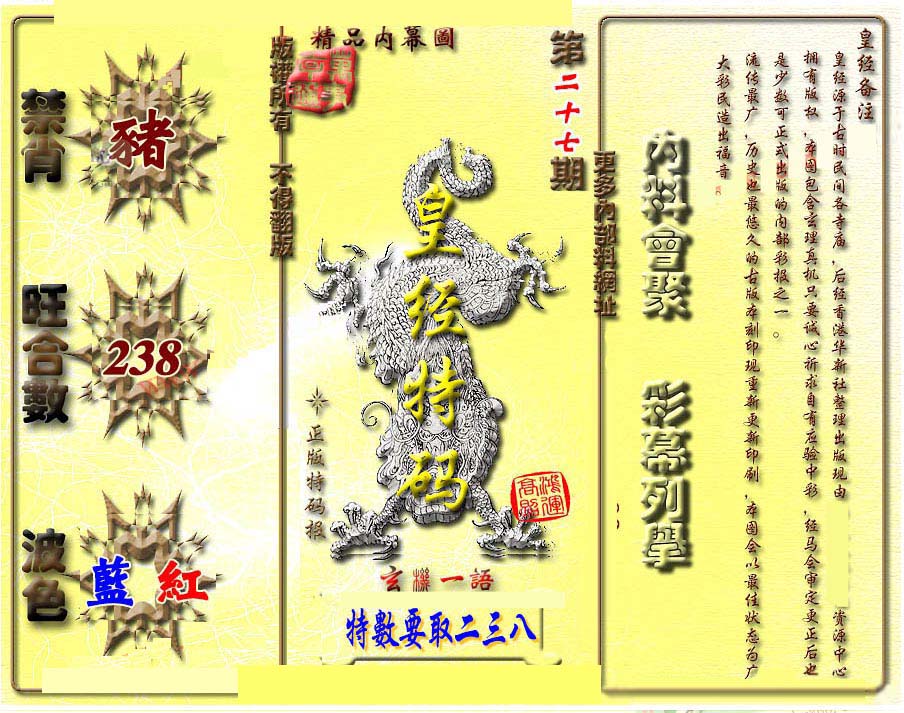 皇经备注
皇经源于古时民间各寺庙,后经香港华新社整理出版现由 资源中心
拥有版权,本图包含玄理真机只要诚心祈求自有应验中彩,经马会审定更正后也
是少数可正式出版的内部彩报之一。
流传最广,历史也最悠久的古版本刻印现重新更新印刷,本图会以最佳状态为广
大彩民造出福音
內料會聚 彩幕列舉
更多內部料網址
第二十七期
精品内幕圖
皇经特码
正版特码报
鴻運高照
玄機一語
特數要取二三八
版權所有 不得翻版
禁肖
豬
旺合數
238
波色
藍 紅